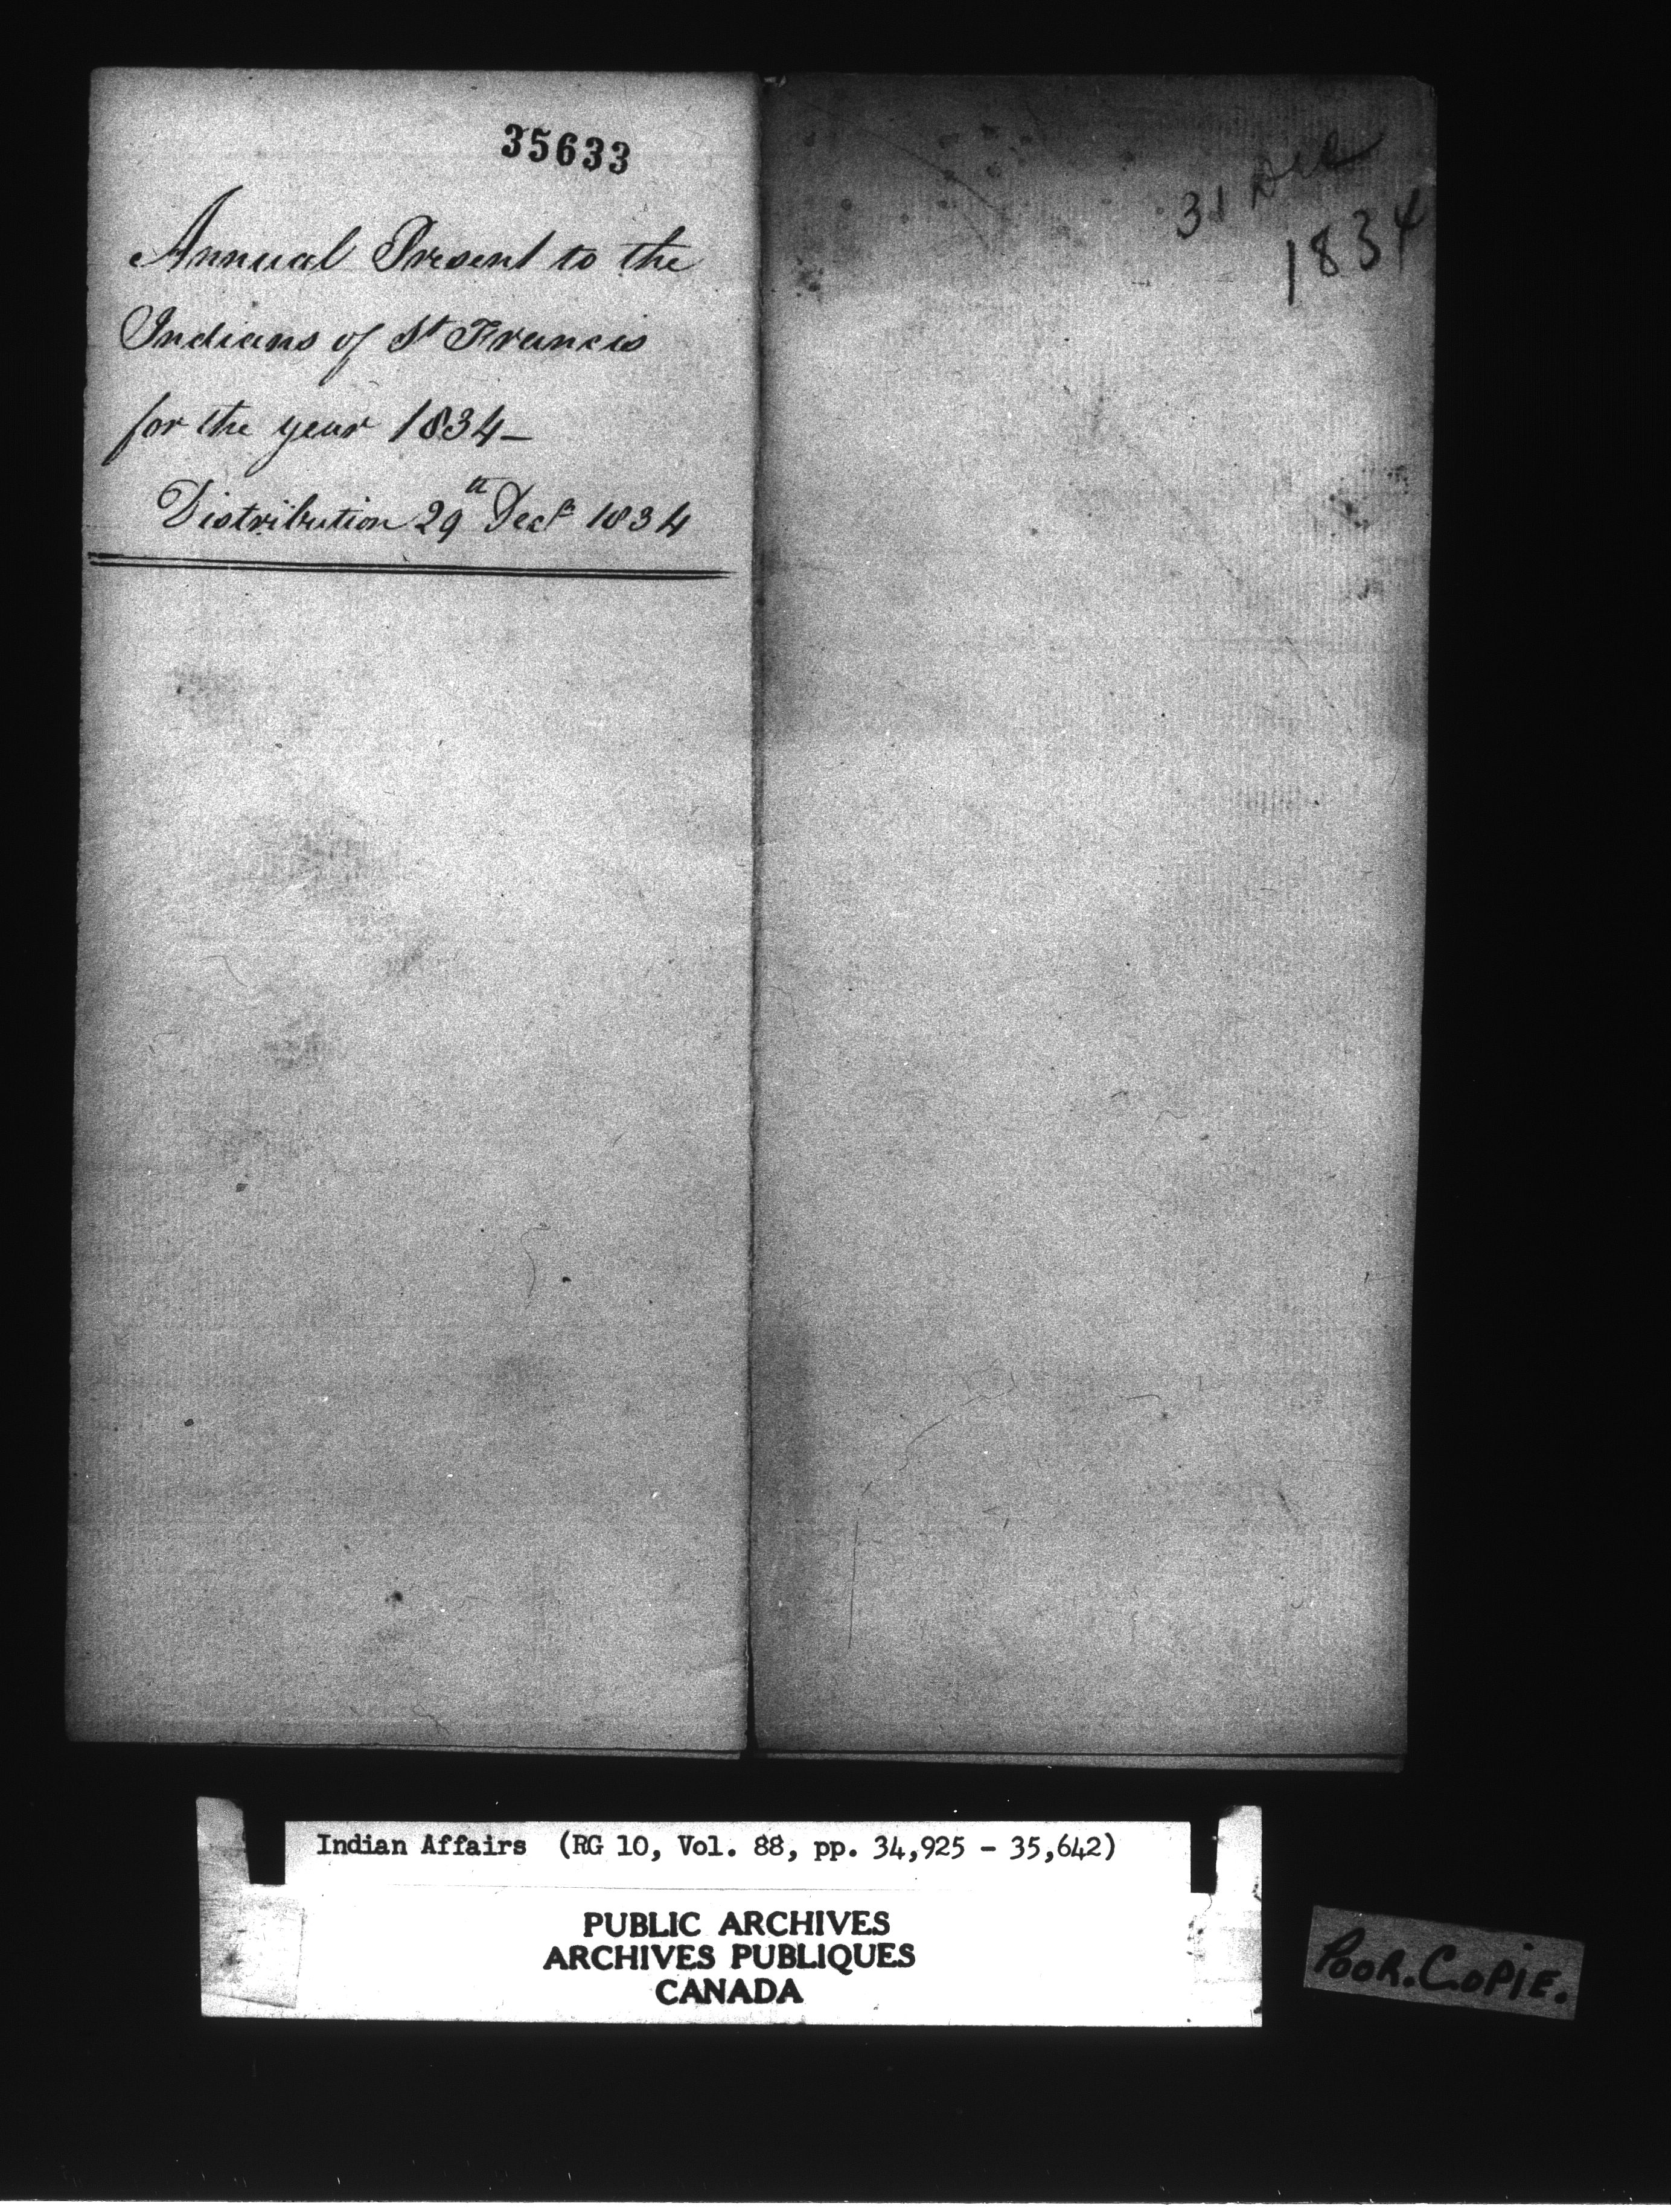 35633
Annual Present to the
Indians of St Francis
for the year 1834-
Distribution 29th Decr 1834
31 Dec
1834
Indian Affairs (RG 10, Vol. 88, pp. 34,925 - 35,642)
PUBLIC ARCHIVES
ARCHIVES PUBLIQUES
CANADA
POOR.COPIE.